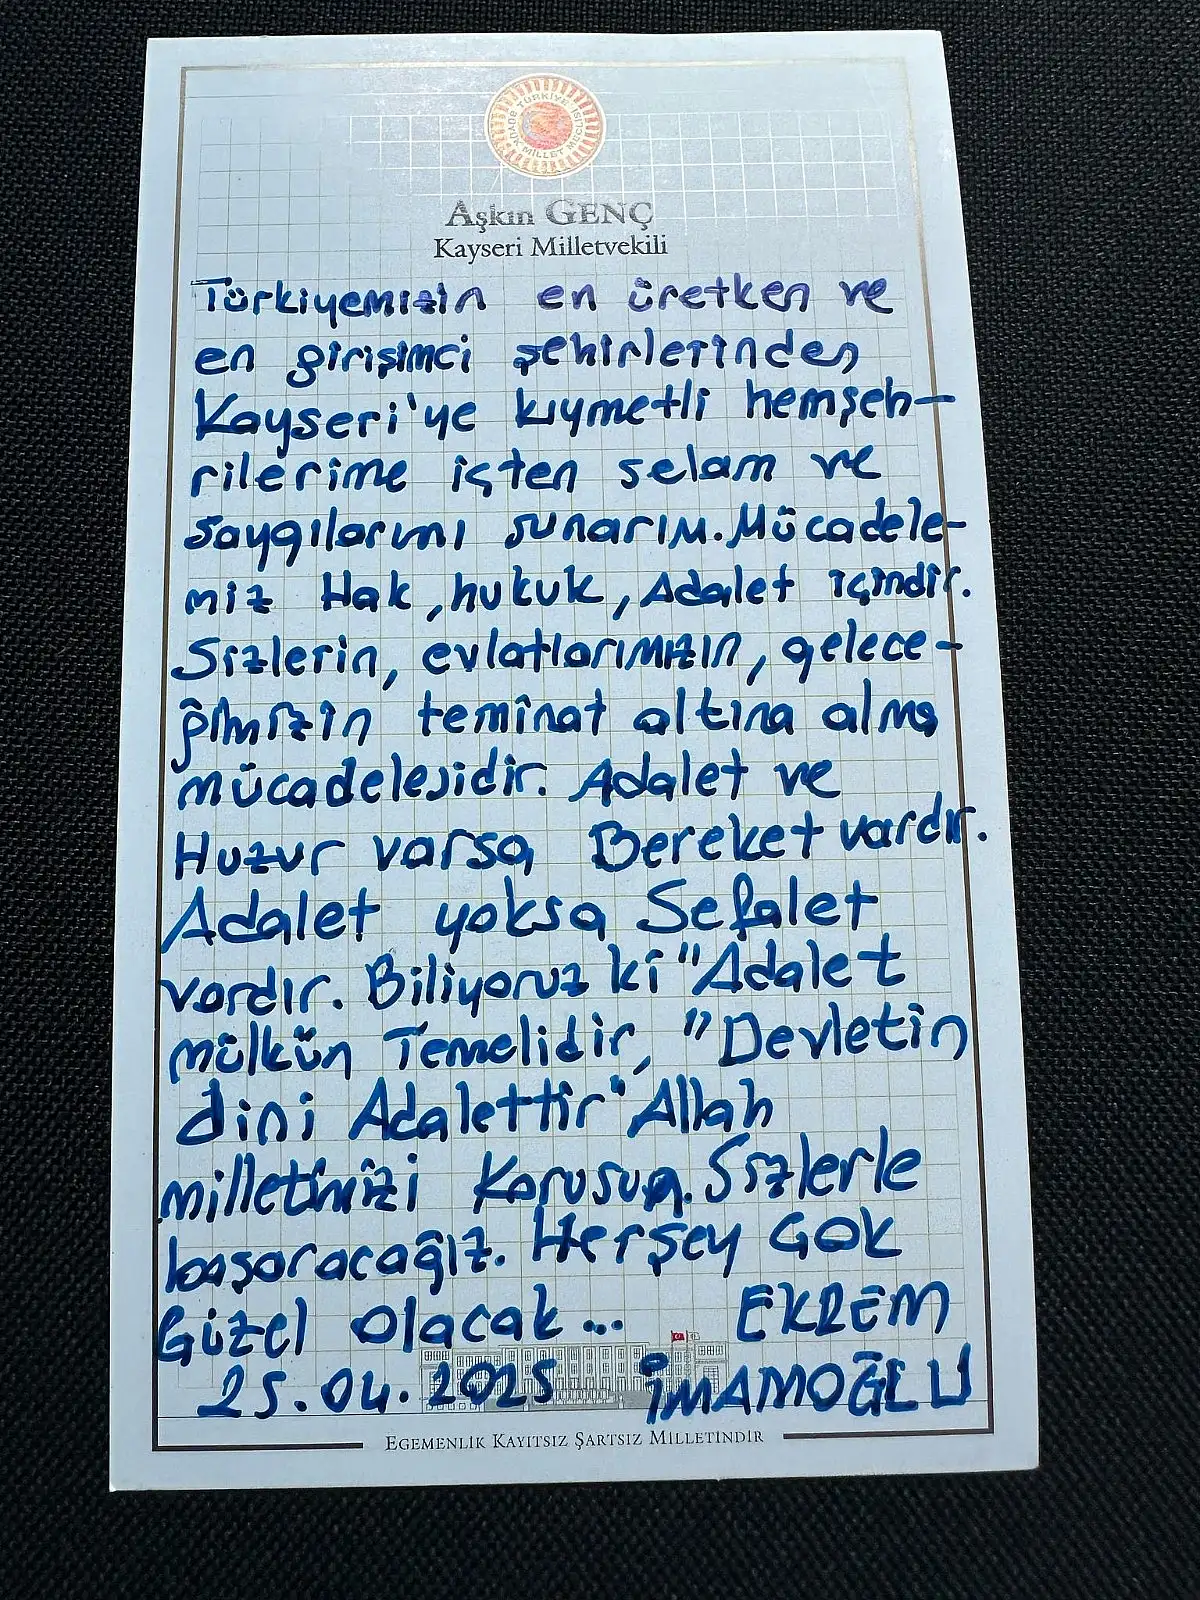 TÜRKİYE BÜYÜK MİLLET MECLİSİ
Aşkın GENÇ
Kayseri Milletvekili
Türkiyemizin en üretken ve
en girişimci şehirlerinden
Kayseri'ye kıymetli hemşeh-
rilerime içten selam ve
saygılarımı sunarım. Mücadele-
miz Hak, hukuk, Adalet içindir.
Sizlerin, evlatlarımızın, gelece-
ğimizin teminat altına alma
mücadelesidir. Adalet ve
Huzur varsa Bereket vardır.
Adalet yoksa Sefalet
vardır. Biliyoruz ki "Adalet
mülkün Temelidir, "Devletin
dini Adalettir" Allah
milletimizi Korusun. Sizlerle
başaracağız. Herşey ÇOK
Güzel olacak... EKREM
25.04.2025 İMAMOĞLU
EGEMENLİK KAYITSIZ ŞARTSIZ MİLLETİNDİR